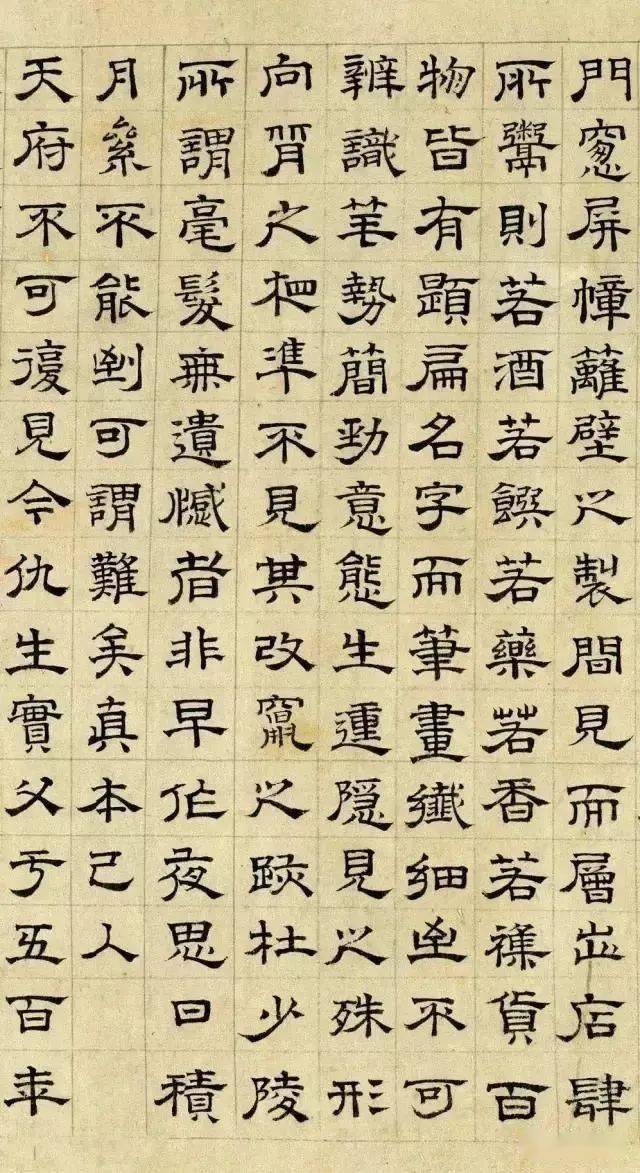 門窓屏幛籬壁之製間見而層出店肆
所鬻則若酒若饌若藥若香若襍貨百
物皆有題扁名字而筆畫纖細至不可
辨識笔勢簡勁意態生動隠見之殊形
向背之相準不見其改竄之跡杜少陵
所謂毫髮無遺憾者非早作夜思日積
月絫不能到可謂難矣真本已入
天府不可復見今仇生實父于五百年